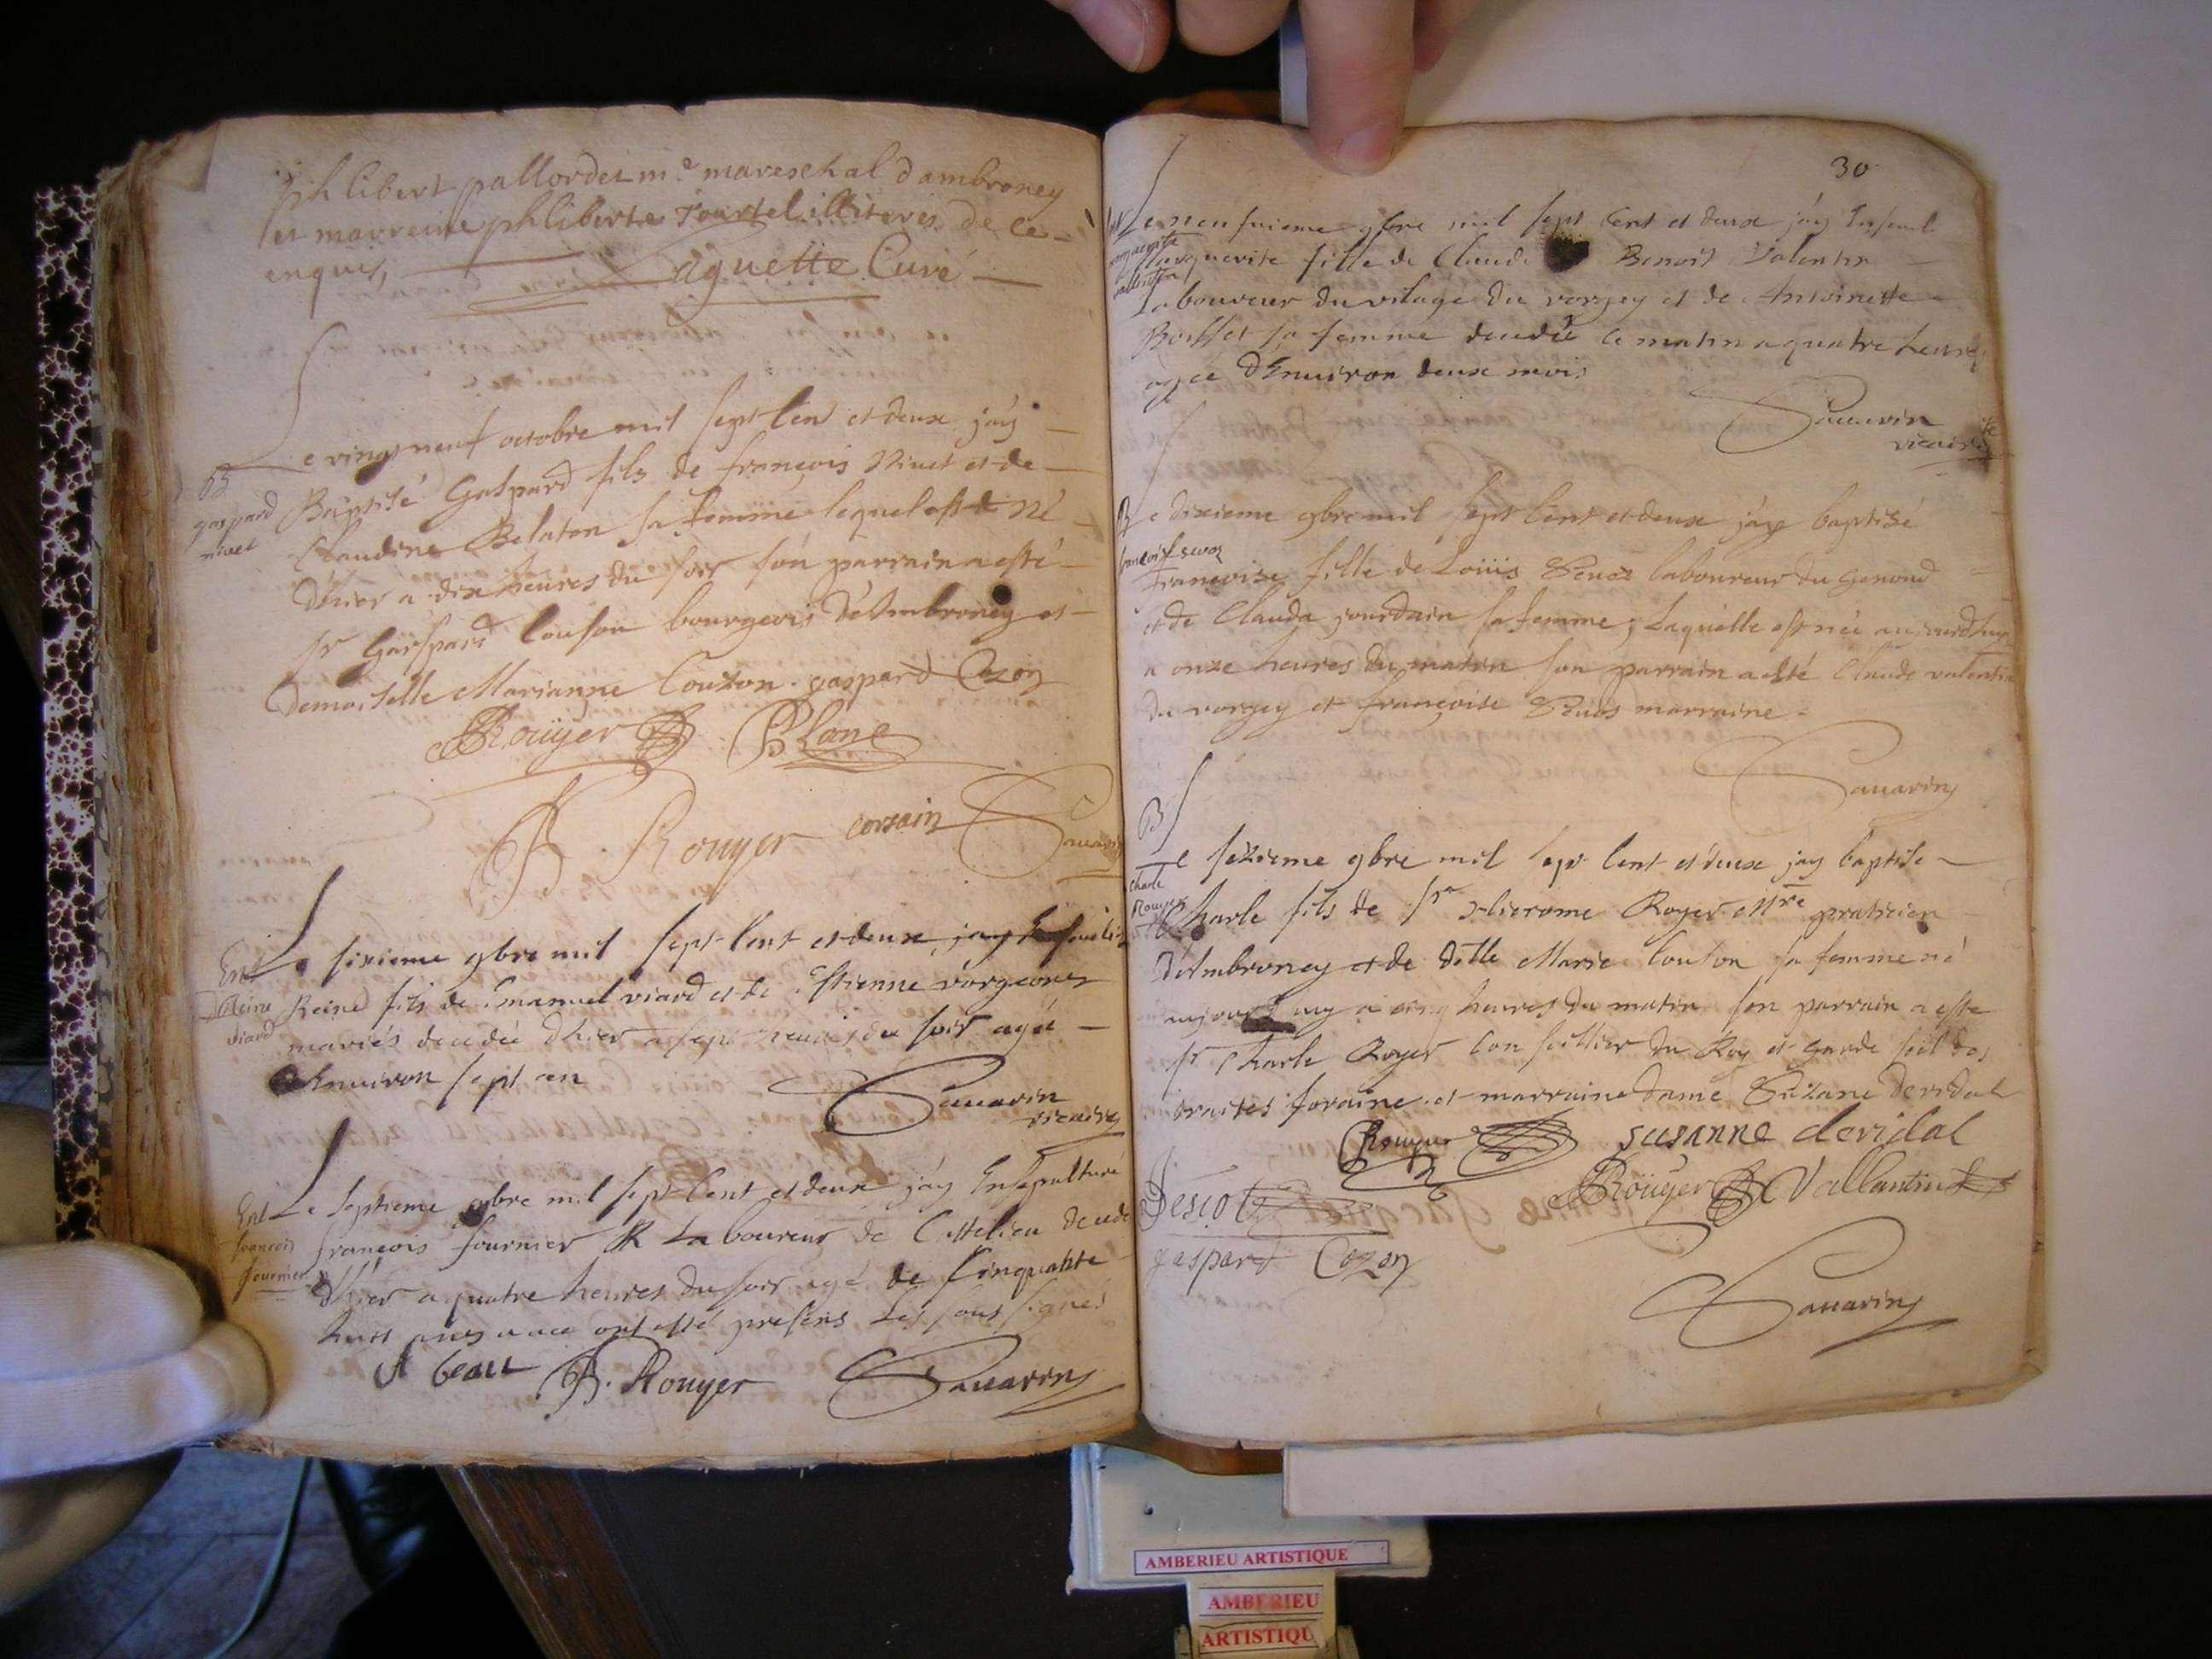 phlibert pallordet m.e mareschal dambroney
et marreine phliberte Tourtel illiteres de ce
enquis,
Laguette Curé
Le vingt neuf octobre mil sept Cent et deux j'ay
B
gaspard
nivet
Baptisé Gaspard fils de françois Nivet et de
Claudine Belaton sa femme lequel est Né
D'hier a dix heures du soir son parrain a esté
sr Gaspard Couson bourgeois D'Ambroney et
Demoiselle Marianne Couzon. gaspard Cozon
Roüyer Blanc
B. Rouyer corsain Sauarin
Ent Le sixieme gbre mil sept Cent et deux jay
Reine
viard
Reine fils de Emanuel viard et de Estienne vorgeons
mariés decedée d'hier a sept heures du soir agée
Enuiron sept an
Sauarin
vicaire
Ent Le septieme gbre mil sept Cent et deux j'ay Ensepulturé
francois
fournier
françois fournier Laboureur de Cottelieu decede
d'hier a quatre heures du soir agé de Cinquante
huit ans a ce ont esté presens Les sous signes
A beau B. Rouyer Sauarin
30
Le neufuieme gbre mil sept Cent et deux j'ay
marguerite
vallentin
Marguerite fille de Claude Benoit Valentin
Laboureur du vilage du vorgey et de Antoinette
sa femme decedée ce matin a quatre heures
agée d'Enuiron deux mois
Sauarin
vicaire
B
Le dixieme gbre mil sept Cent et deux j'ay baptisé
francoise
francoise fille de Loüis laboureur du Genoud
et de Clauda jourdain sa femme, Laquelle est née aujourd'huy
a onze heures du matin son parrain a esté Claude valentin
du vorgey et françoise marraine
Sauarin
B
Le sezieme gbre mil sept Cent et deux jay baptise
Charle
Rouyer
Charle fils de sr hierome Royer praticien
D'Ambroney et de dlle Marie Couson sa femme né
aujourd'huy a cinq heures du matin son parrain a este
sr Charle Royer Conseillier du Roy et garde seel des
traites foraine et marraine dame Suzane devidal
Rouyer susanne devidal
Jescot Roüyer Vallantin
gaspard Cozon
Sauarin
AMBERIEU ARTISTIQUE
AMBERIEU
ARTISTIQU